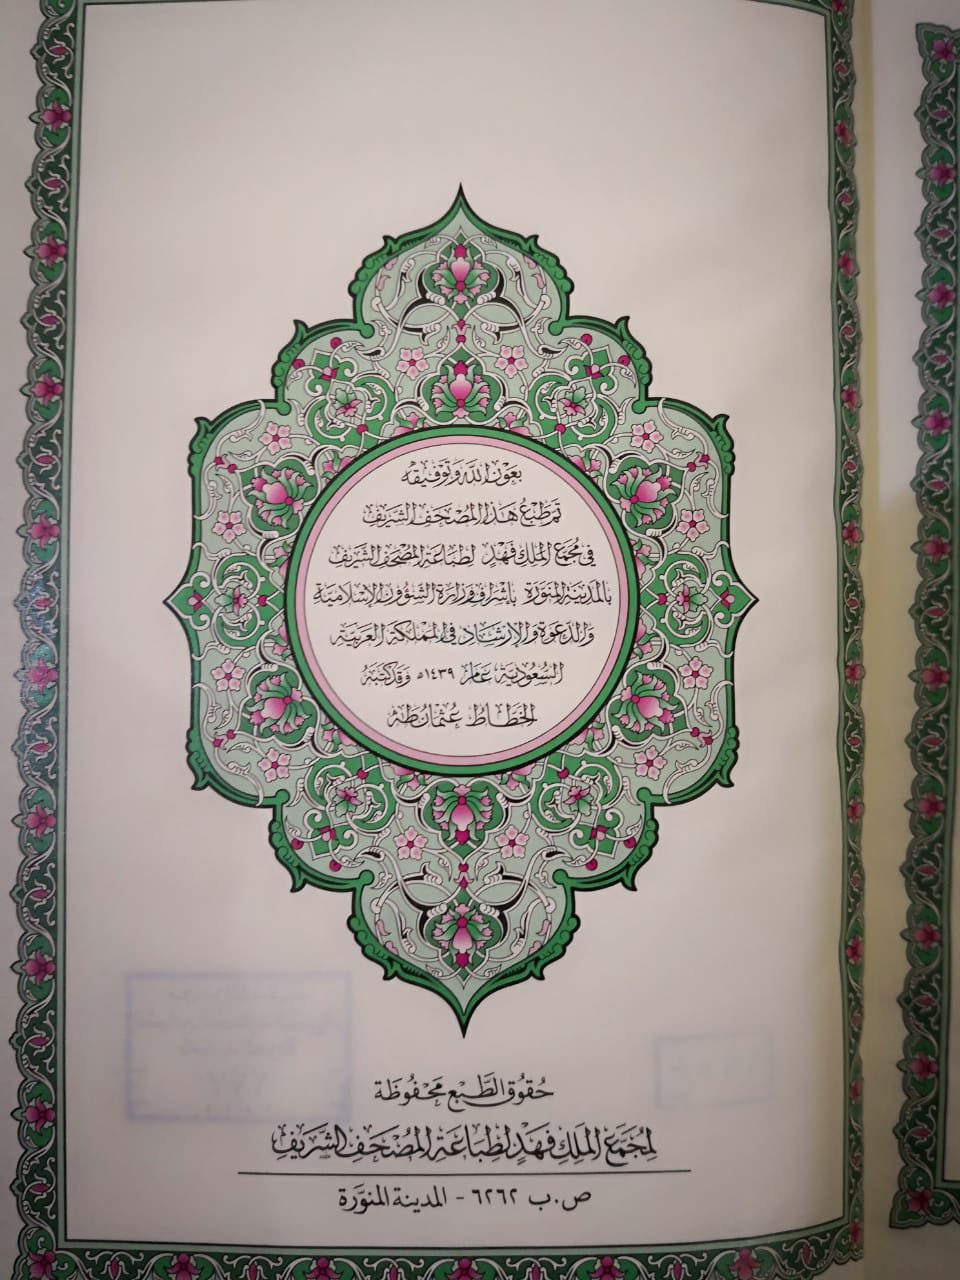 بعون الله وتوفيقه
تم طبع هذا المصحف الشريف
في مجمع الملك فهد لطباعة المصحف الشريف
بالمدينة المنورة بإشراف وزارة الشؤون الإسلامية
والدعوة والإرشاد في المملكة العربية
السعودية، عام ١٤٣٩ه وقد كتبه
الخطاط عثمان طه
حُقُوق الطَّبْع مَحْفُوظَة
لِمُجَمَّعِ المَلِكِ فَهْدٍ لِطِبَاعَةِ المُصْحَفِ الشَّرِيفِ
ص.ب ٦٢٦٢ - المدينة المنوَّرة